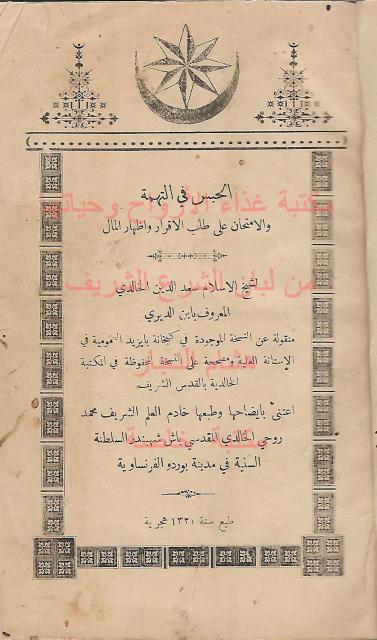 الحبس في التهمة
والامتحان على طلب الاقرار واظهار المال
لشيخ الاسلام سعد الدين الخالدي
المعروف بابن الديري
منقولة عن النسخة الموجودة في كتبخانة بايزيد العمومية في
الاستانة العلية ومصححة على النسخة المحفوظة في المكتبة
الخالدية بالقدس الشريف
اعتنى بايضاحها وطبعها خادم العلم الشريف محمد
روحي الخالدي المقدسي باش شهبندر السلطنة
السنية في مدينة بوردو الفرنساوية
طبع سنة ١٣٢١ هجرية
مكتبة غذاء الأرواح وحياتها
من لبان الشرع الشريف
هشام النجار
مكتبة متخصصة